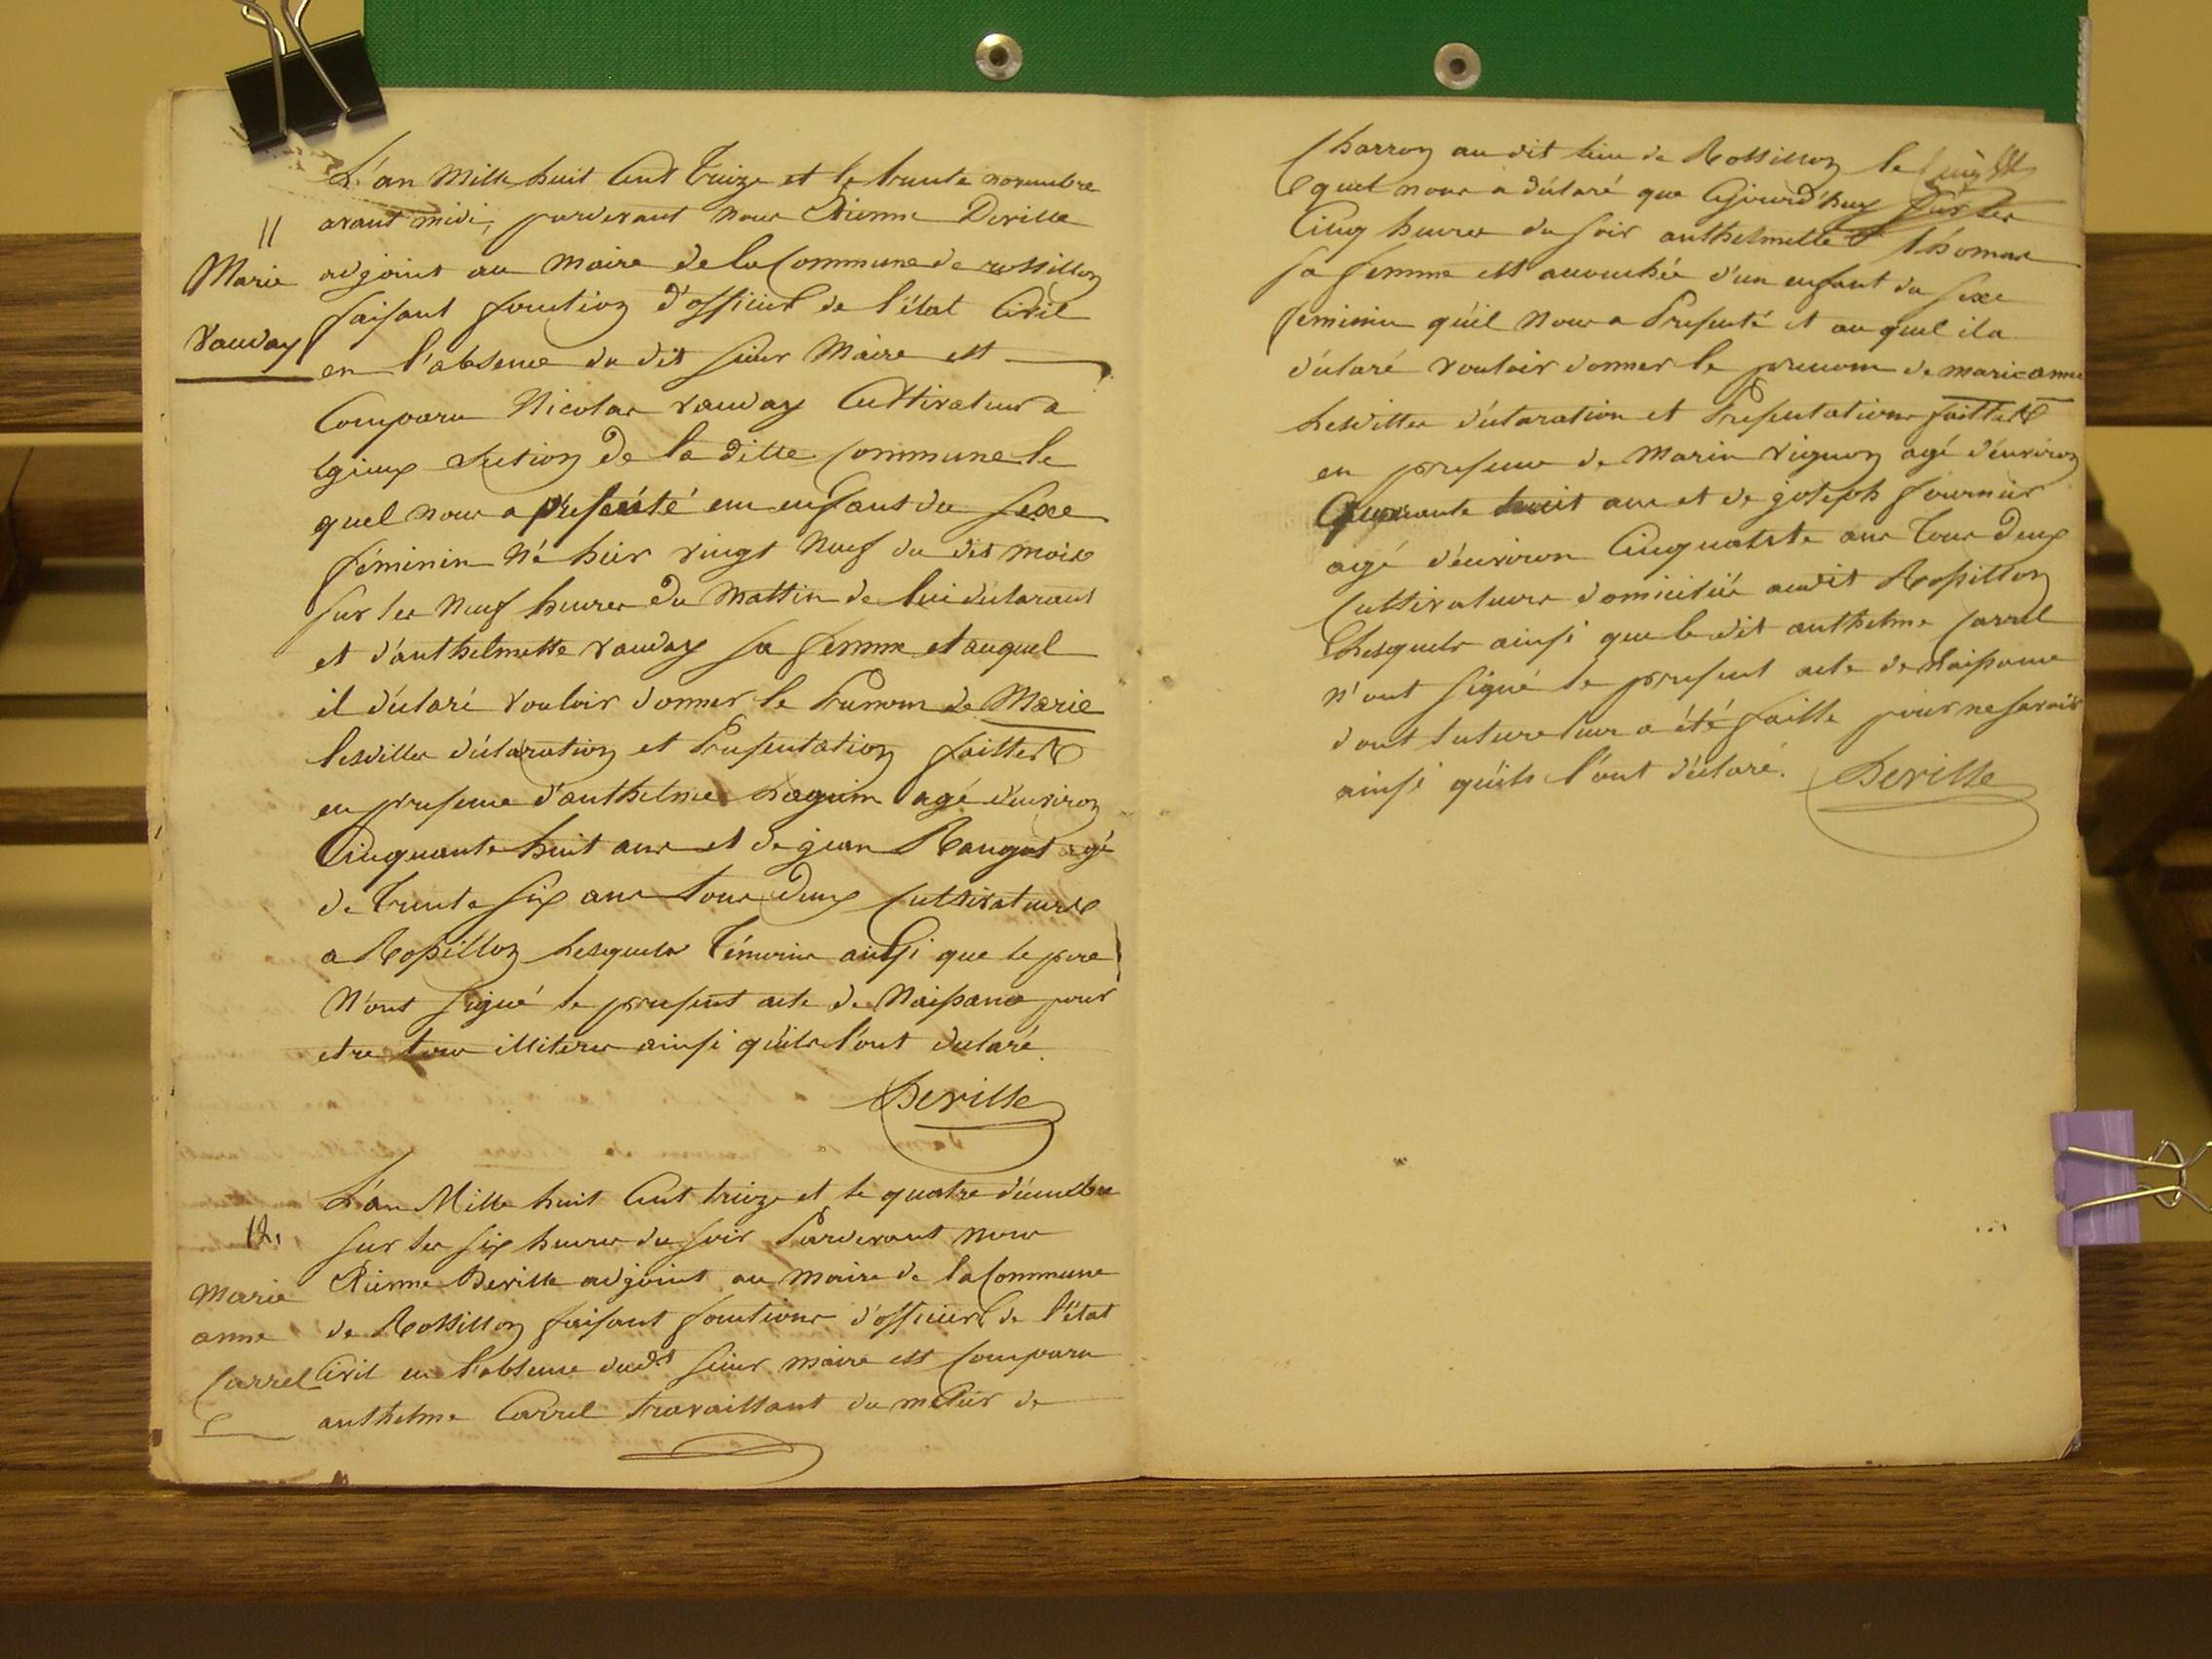 L'an Mille huit Cent Treize et le trente novembre
avant midi, pardevant nous Etienne Deville
11
Marie
adjoint au Maire de la Commune de rossillon
faisant fonction d'officier de l'état Civil
Vauday
en l'absence du dit sieur Maire est
Comparu Nicolas Vauday Cultivateur a
Egieux section de la ditte Commune le
quel nous a présenté un enfant du sexe
féminin né hier vingt neuf du dit mois
sur les neuf heures du mattin de lui déclarant
et d'anthelmette Vauday sa femme et auquel
il déclaré vouloir donner le Prenom de Marie
lesdittes déclaration et Presentation faittes
en presence d'anthelme agé d'environ
Cinquante huit ans et de jean agé
de trente six ans tous deux Cultivateurs
a Rossillon Lesquels Témoins ainsi que le pere
N'ont signé le present acte de Naissance pour
etre tous illiteres ainsi qu'ils l'ont déclaré
Deville
L'an Mille huit Cent treize et le quatre décembre
12.
sur les six heures du soir Pardevant nous
Marie
Etienne Deville adjoint au maire de la Commune
anne
de Rossillon faisant fonctions d'officier de l'état
Carrel
Civil en l'absence dudt sieur maire est Comparu
anthelme Carrel travaillant du métier de
Charron au dit lieu de Rossillon le
quel nous a déclaré que Ajourd'huy sur les
Cinq heures du soir anthelmette Thomas
sa femme est accouchée d'un enfant du sexe
feminin qu'il nous a Presenté et au quel il a
déclaré vouloir donner le prenom de marie anne
Lesdittes déclaration et Presentations faittes
en presence de Marin Vignon agé d'environ
Quarante huit ans et de joseph fournier
agé d'environ Cinquante ans tous deux
Cultivateurs domiciliés audit Rossillon
Lesquels ainsi que le dit anthelme Carrel
N'ont signé le present acte de Naissance
dont lecture leur a été faitte pour ne savoir
ainsi qu'ils l'ont déclaré. Deville